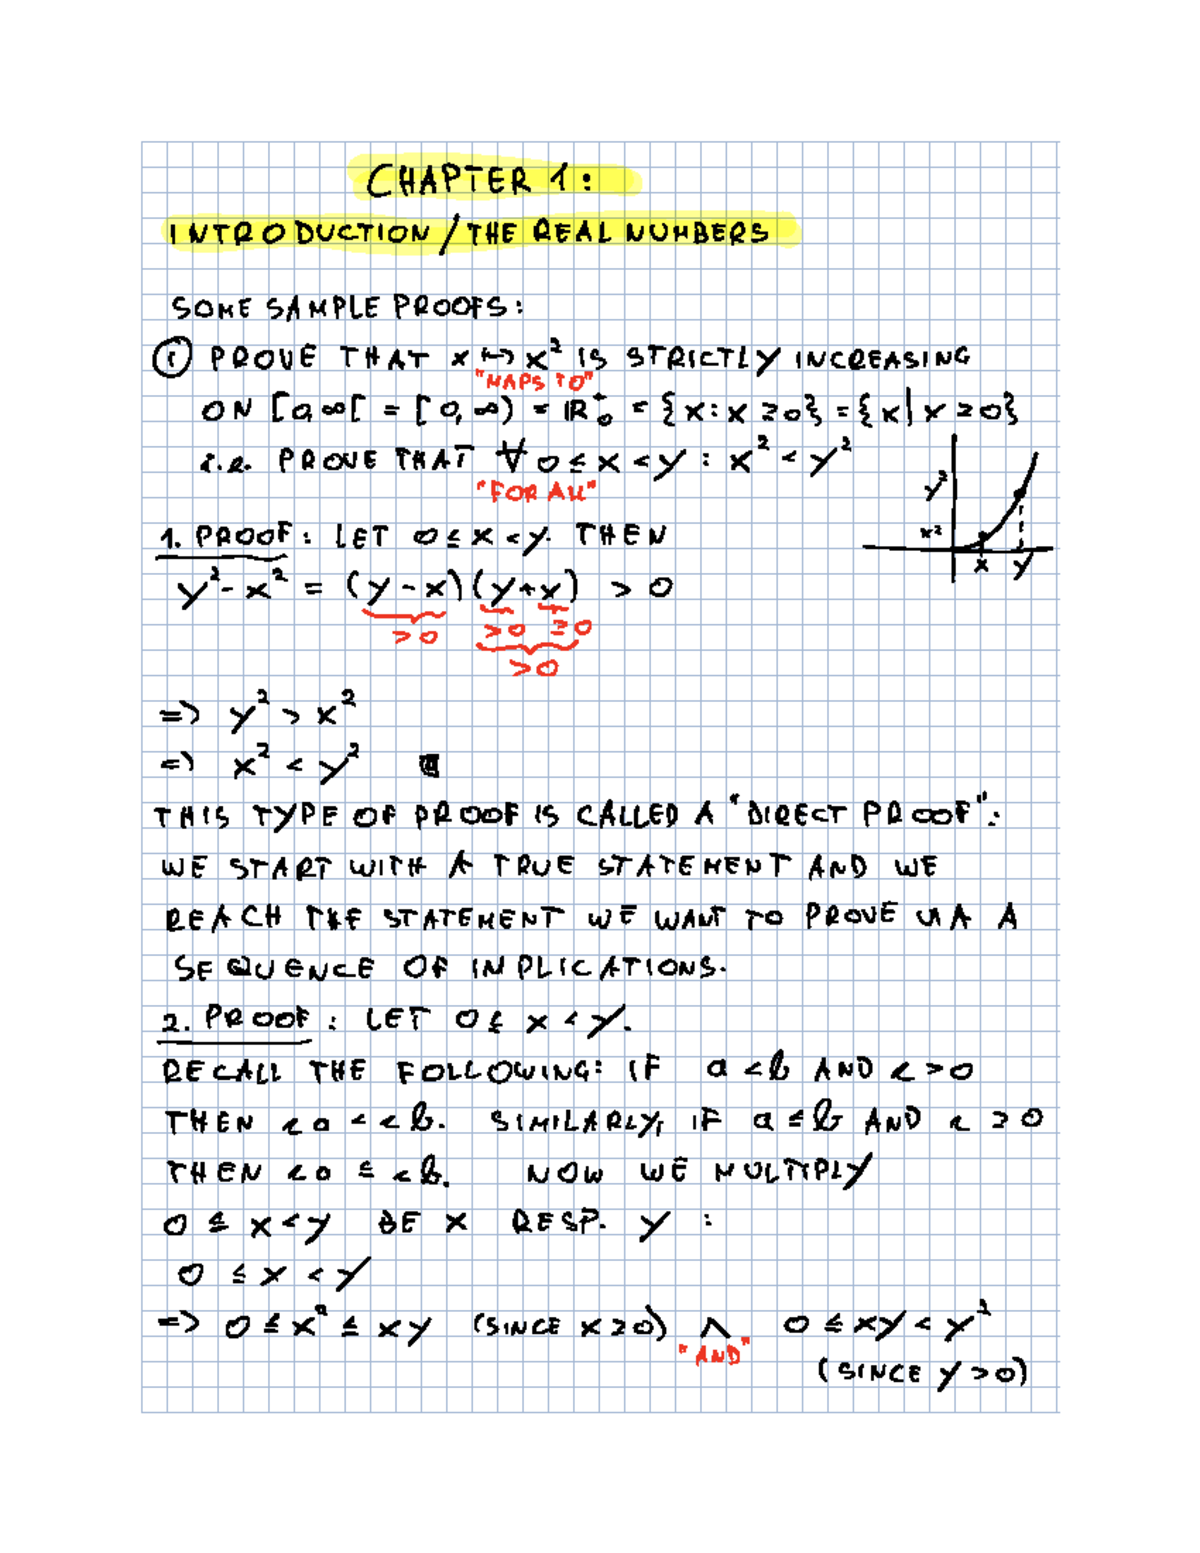 CHAPTER 1:
INTRODUCTION / THE REAL NUMBERS
SOME SAMPLE PROOFS:
① PROVE THAT x ↦ x² IS STRICTLY INCREASING
"MAPS TO"
ON [0,∞[ = [0,∞) = ℝ₀⁺ = {x : x ≥ 0} = {x | x ≥ 0}
i.e. PROVE THAT ∀ 0 ≤ x < y : x² < y²
"FOR ALL"
y²
x²
x y
1. PROOF: LET 0 ≤ x < y. THEN
y² - x² = (y - x)(y + x) > 0
> 0 > 0 ≥ 0
> 0
=> y² > x²
=> x² < y²
THIS TYPE OF PROOF IS CALLED A "DIRECT PROOF":
WE START WITH A TRUE STATEMENT AND WE
REACH THE STATEMENT WE WANT TO PROVE VIA A
SEQUENCE OF IMPLICATIONS.
2. PROOF: LET 0 ≤ x < y.
RECALL THE FOLLOWING: IF a < b AND c > 0
THEN ca < cb. SIMILARLY, IF a ≤ b AND c ≥ 0
THEN ca ≤ cb. NOW WE MULTIPLY
0 ≤ x < y BE x RESP. y :
0 ≤ x < y
=> 0 ≤ x² ≤ xy (SINCE x ≥ 0) ∧ 0 ≤ xy < y²
"AND"
(SINCE y > 0)